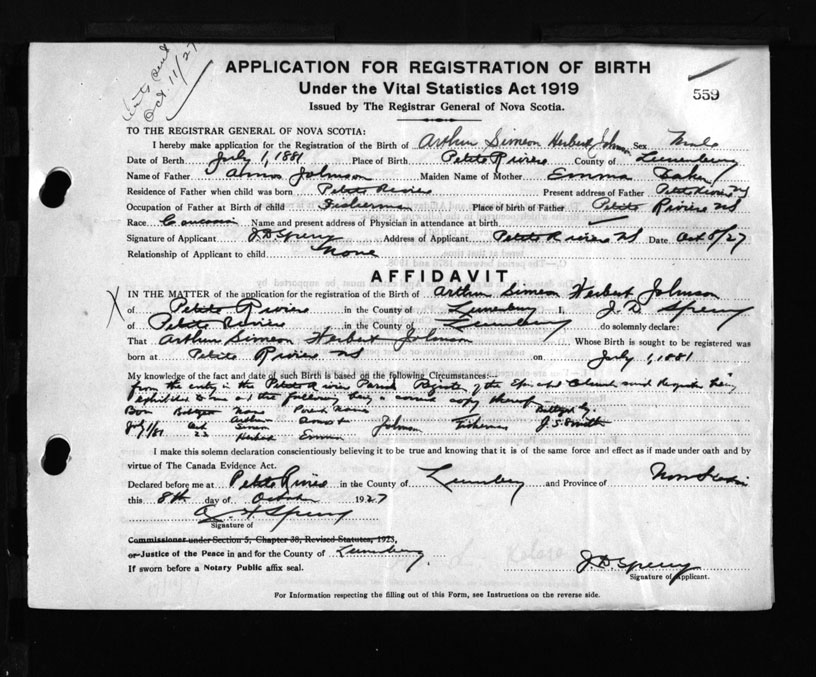 Oct. 11/27
APPLICATION FOR REGISTRATION OF BIRTH
Under the Vital Statistics Act 1919
559
Issued by The Registrar General of Nova Scotia.
TO THE REGISTRAR GENERAL OF NOVA SCOTIA:
I hereby make application for the Registration of the Birth of Arthur Simeon Herbert Johnson Sex Male
Date of Birth July 1, 1881 Place of Birth Petite Riviere County of Lunenburg
Name of Father Amos Johnson Maiden Name of Mother Emma
Residence of Father when child was born Petite Riviere Present address of Father Petite Riviere NS
Occupation of Father at Birth of child Fisherman Place of birth of Father Petite Riviere NS
Race Name and present address of Physician in attendance at birth
Signature of Applicant J D Sperry Address of Applicant Petite Riviere NS Date Oct 8/27
Relationship of Applicant to child None
AFFIDAVIT
X IN THE MATTER of the application for the registration of the Birth of Arthur Simeon Herbert Johnson
of Petite Riviere in the County of Lunenburg I, J. D. Sperry
of Petite Riviere in the County of Lunenburg do solemnly declare:
That Arthur Simeon Herbert Johnson Whose Birth is sought to be registered was
born at Petite Riviere NS on July 1, 1881
My knowledge of the fact and date of such Birth is based on the following Circumstances:—
from the entry in the Petite Riviere Parish Register of the Church said Register being
exhibited to me and the following being a correct copy thereof
Born Name Parents Name By
Arthur Amos &
81 Oct Simeon Johnson Fisherman J. S. Smith
23 Herbert Emma
I make this solemn declaration conscientiously believing it to be true and knowing that it is of the same force and effect as if made under oath and by
virtue of The Canada Evidence Act.
Declared before me at Petite Riviere in the County of Lunenburg and Province of Nova Scotia
this 8th day of October 1927
Sperry
Signature of
Commissioner under Section 5, Chapter 38, Revised Statutes, 1923,
or Justice of the Peace in and for the County of Lunenburg
If sworn before a Notary Public affix seal.
J D Sperry
Signature of Applicant.
For Information respecting the filling out of this Form, see Instructions on the reverse side.